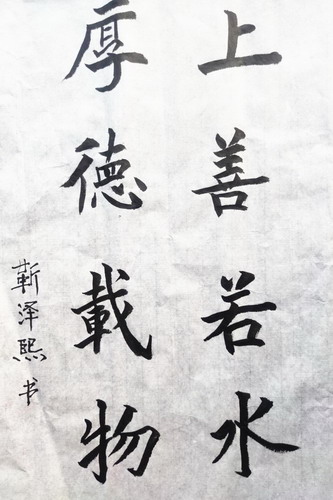 上善若水
厚德載物
靳泽熙书